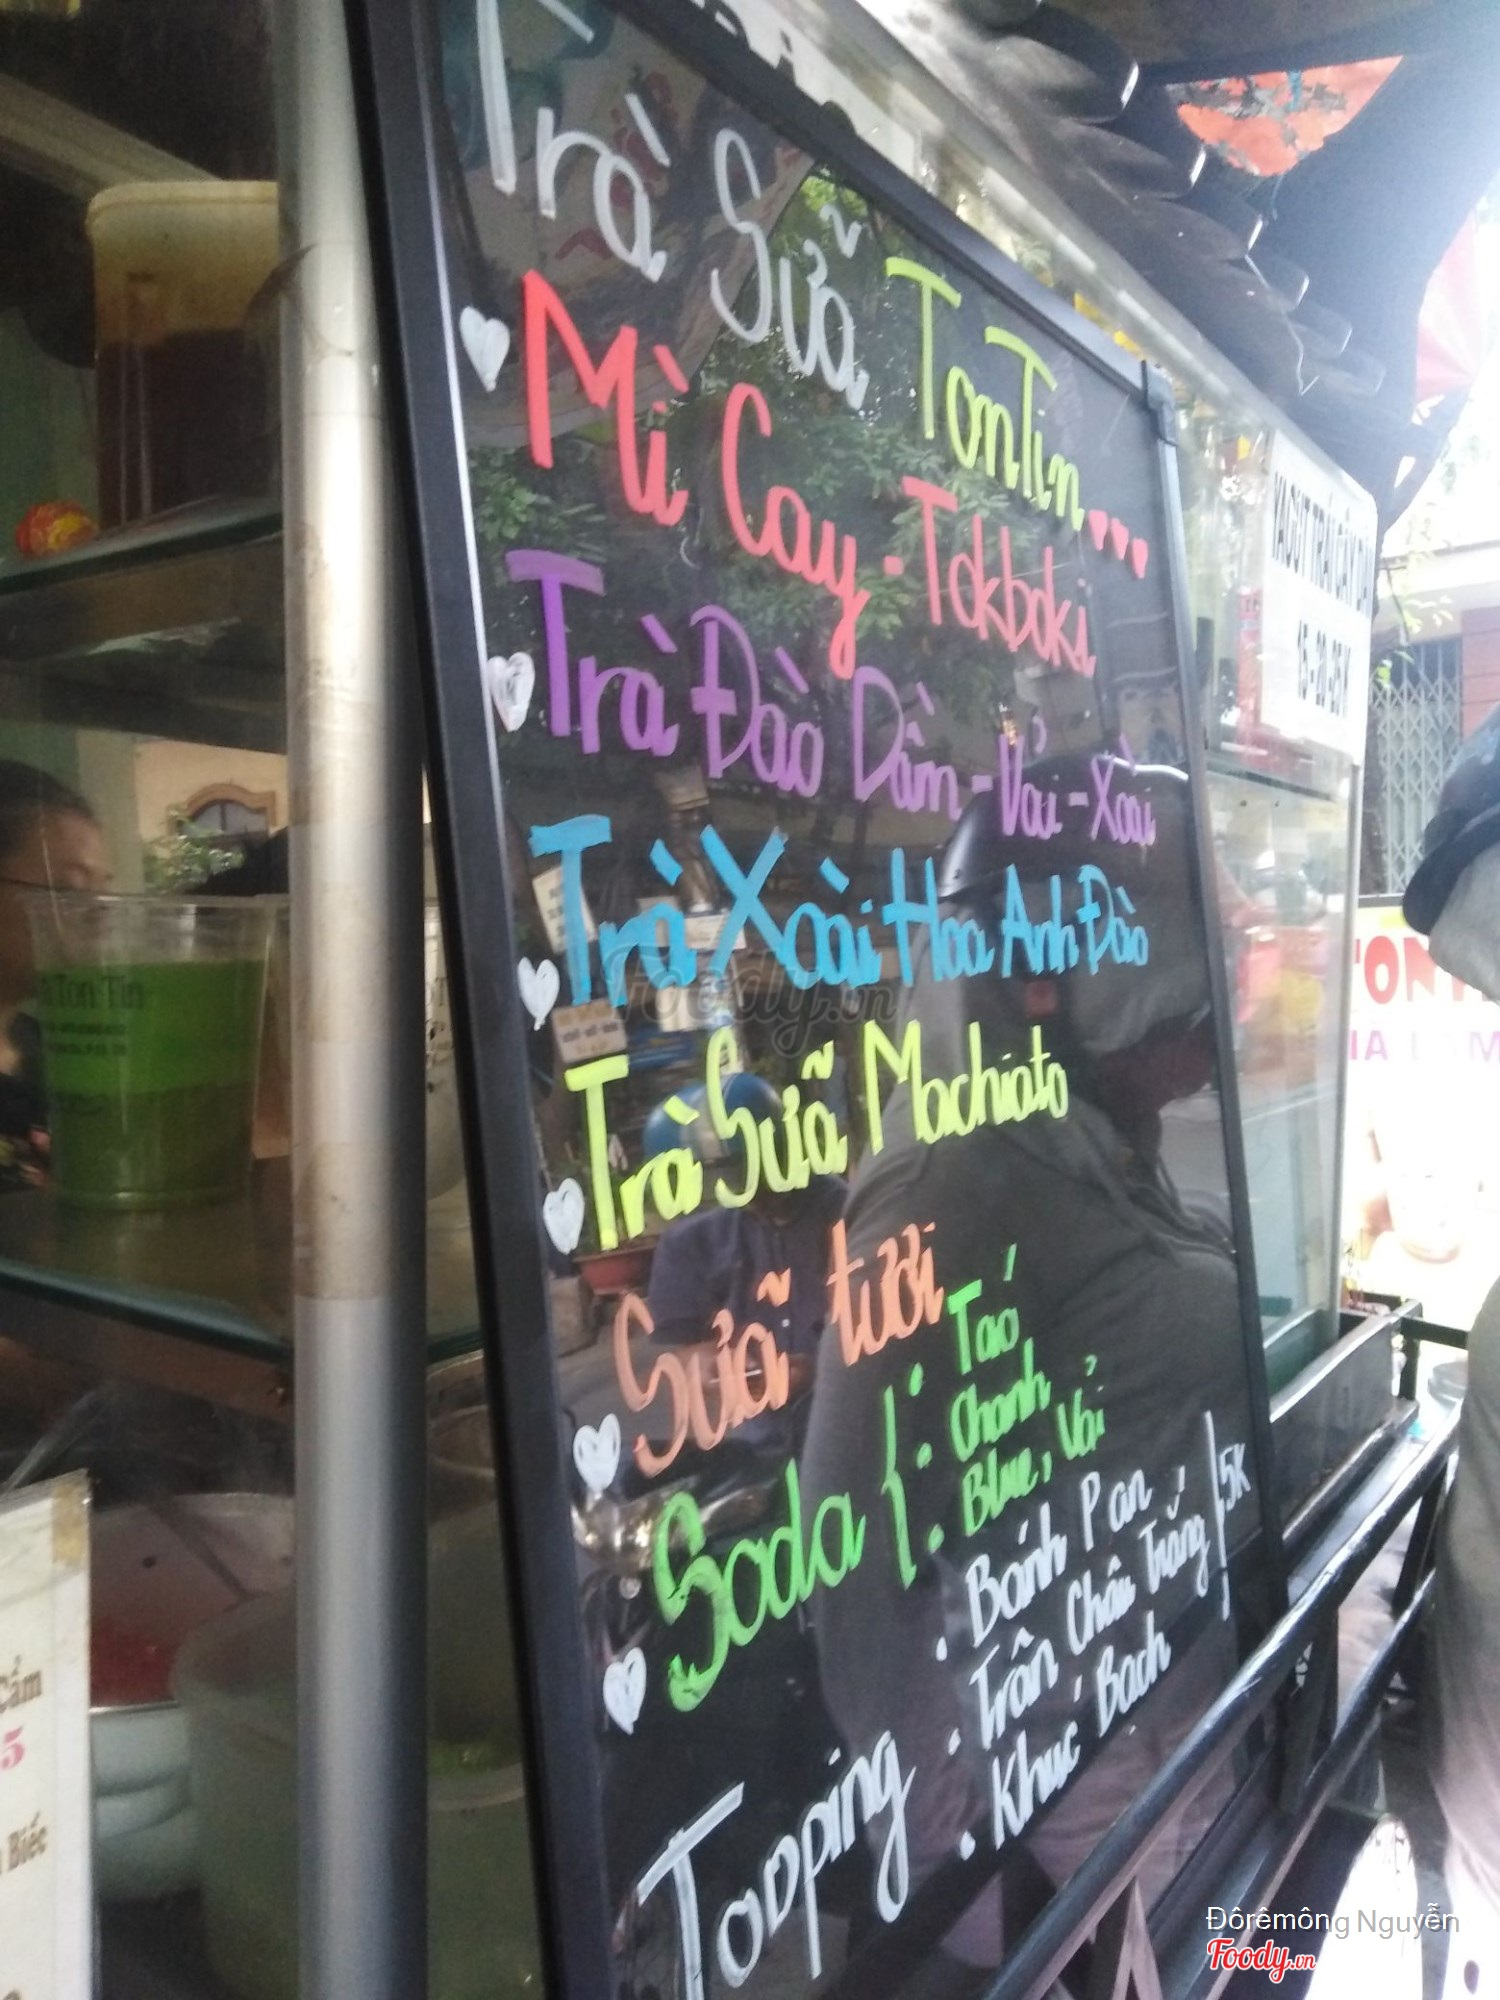 Trà Sữa TonTin
Mì Cay - Tokboki
Trà Đào Dầm - Vải - Xoài
Trà Xoài Hoa Anh Đào
Trà Sữã Machiato
Sữã tươi
Soda { : Táo
: Chanh
. Blue, Vải
Topping . Bánh Pan
. Trân Châu Trắng
. Khúc Bạch
5K
YAOUT TRÁI CÂY
15-20-25K
Ton Tin
Cẩm
5
Biếc
Foody.vn
Đôrêmông Nguyễn
Foody.vn